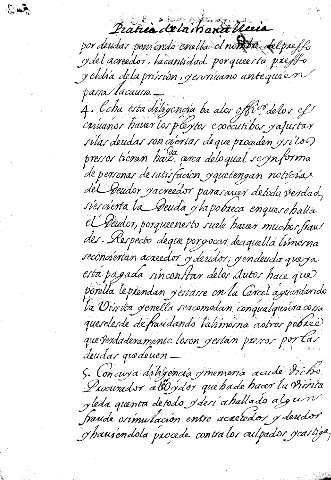 Pratica de la
por deudas poniendo en ella el nombre del presso
y del acreedor, la cantidad por que esta presso
y el dia de la prision, y escrivano ante quien
passa la causa
4. Echa esta diligencia ba a los offi.os de los es
crivanos haver los pleytos executibos, y ajustar
si las deudas son ciertas de que proceden y si los
pressos tienen haz.da cerca de lo qual se ynforma
de personas de satisfacion, y que tengan noticias
del Deudor, y acreedor para saver de toda verdad,
si es cierta la Deuda, y la pobreça en que se halla
el Deudor, porque en esto suele haver muchos frau
des. Respecto de que por goçar de aquella limosna
se conciertan acreedor y deudor, y en deuda que ya
esta pagada sin constar de los Autos hace que
por ella le prendan y estarse en la Carcel aguardando
la Visita y en ella se acomodan, con qualquiera cossa
que se les de defraudando la limosna a otros pobres
que verdaderamente lo son y estan presos por las
deudas que deven
5. Con cuya diligencia y memoria acude dicho
Procurador a el Oydor que ha de hacer la Visita
y le da quenta de todo, y de si a hallado algun
fraude o simulacion entre acreedores, y deudor
y haviendola procede contra los culpados y castiga